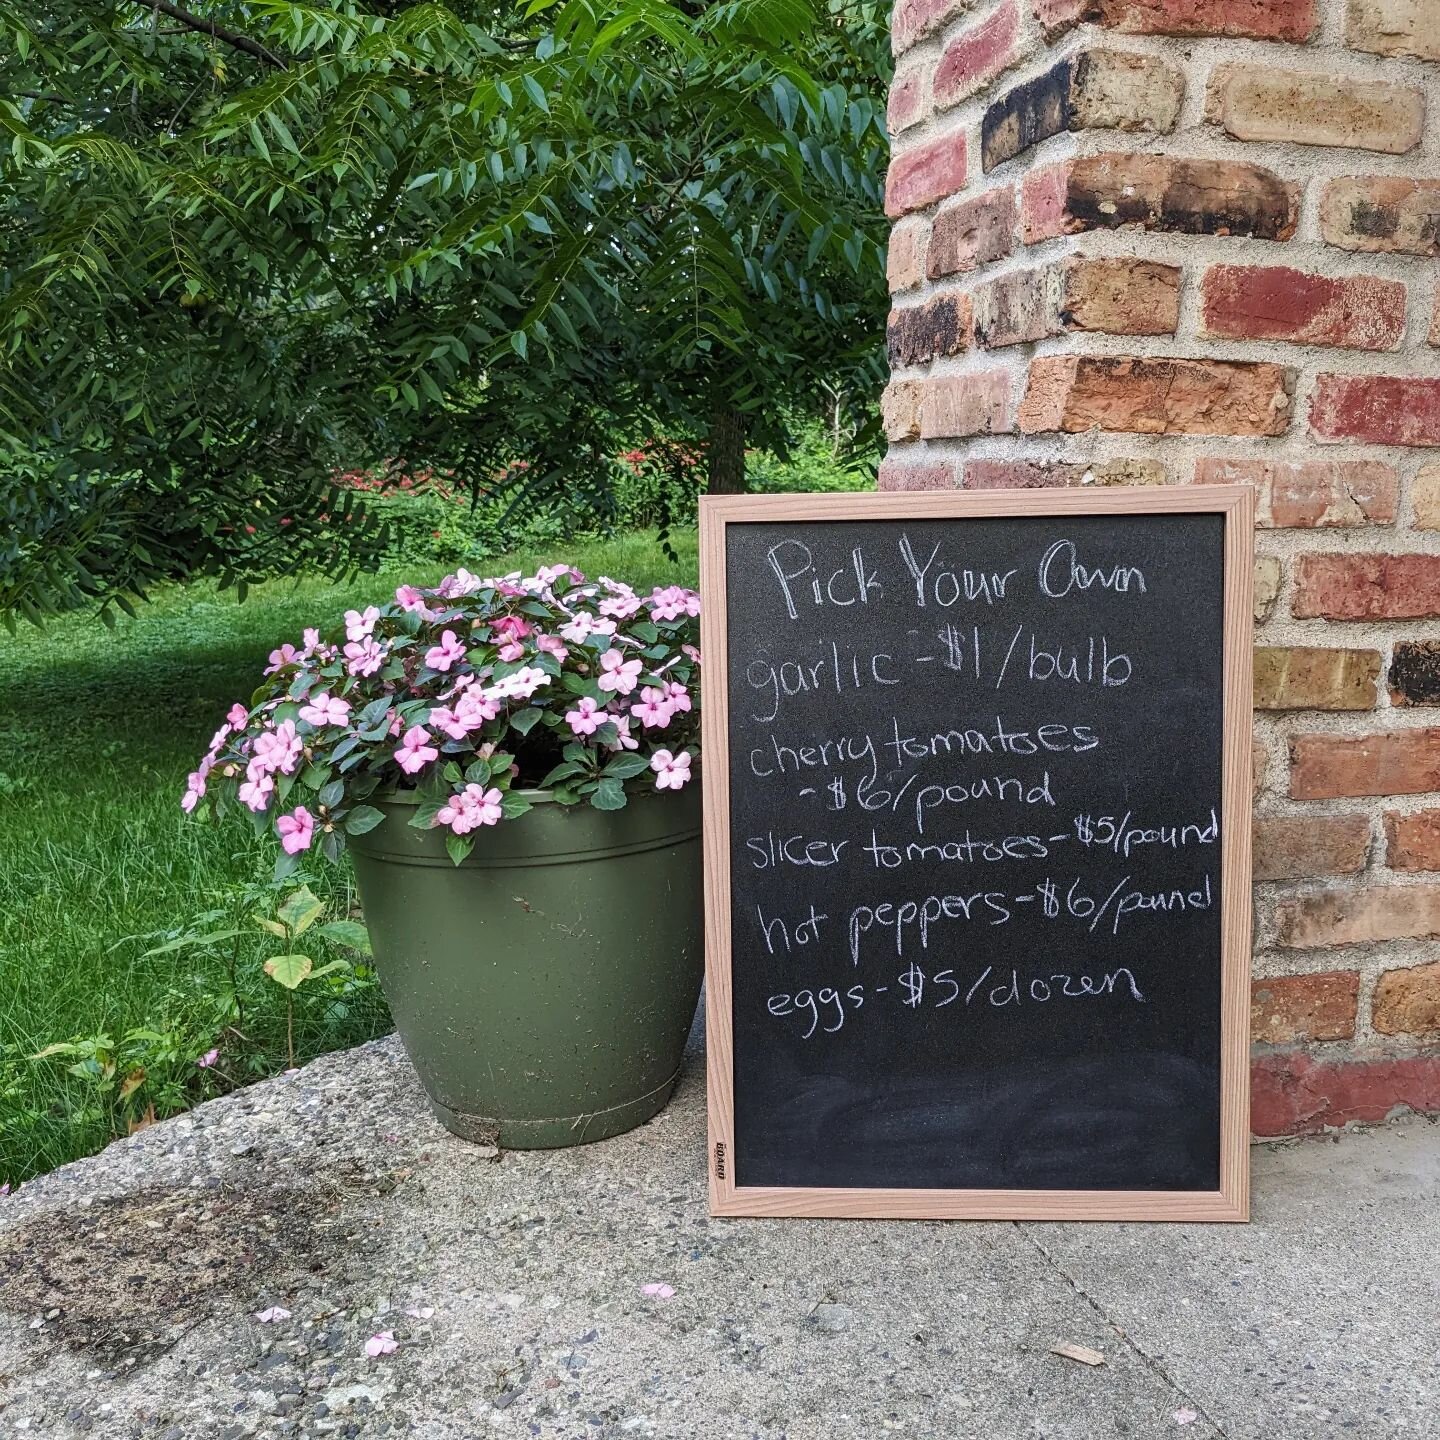 Pick Your Own
garlic - $1/bulb
cherry tomatoes
- $6/pound
slicer tomatoes - $5/pound
hot peppers - $6/pound
eggs - $5/dozen
BOARD